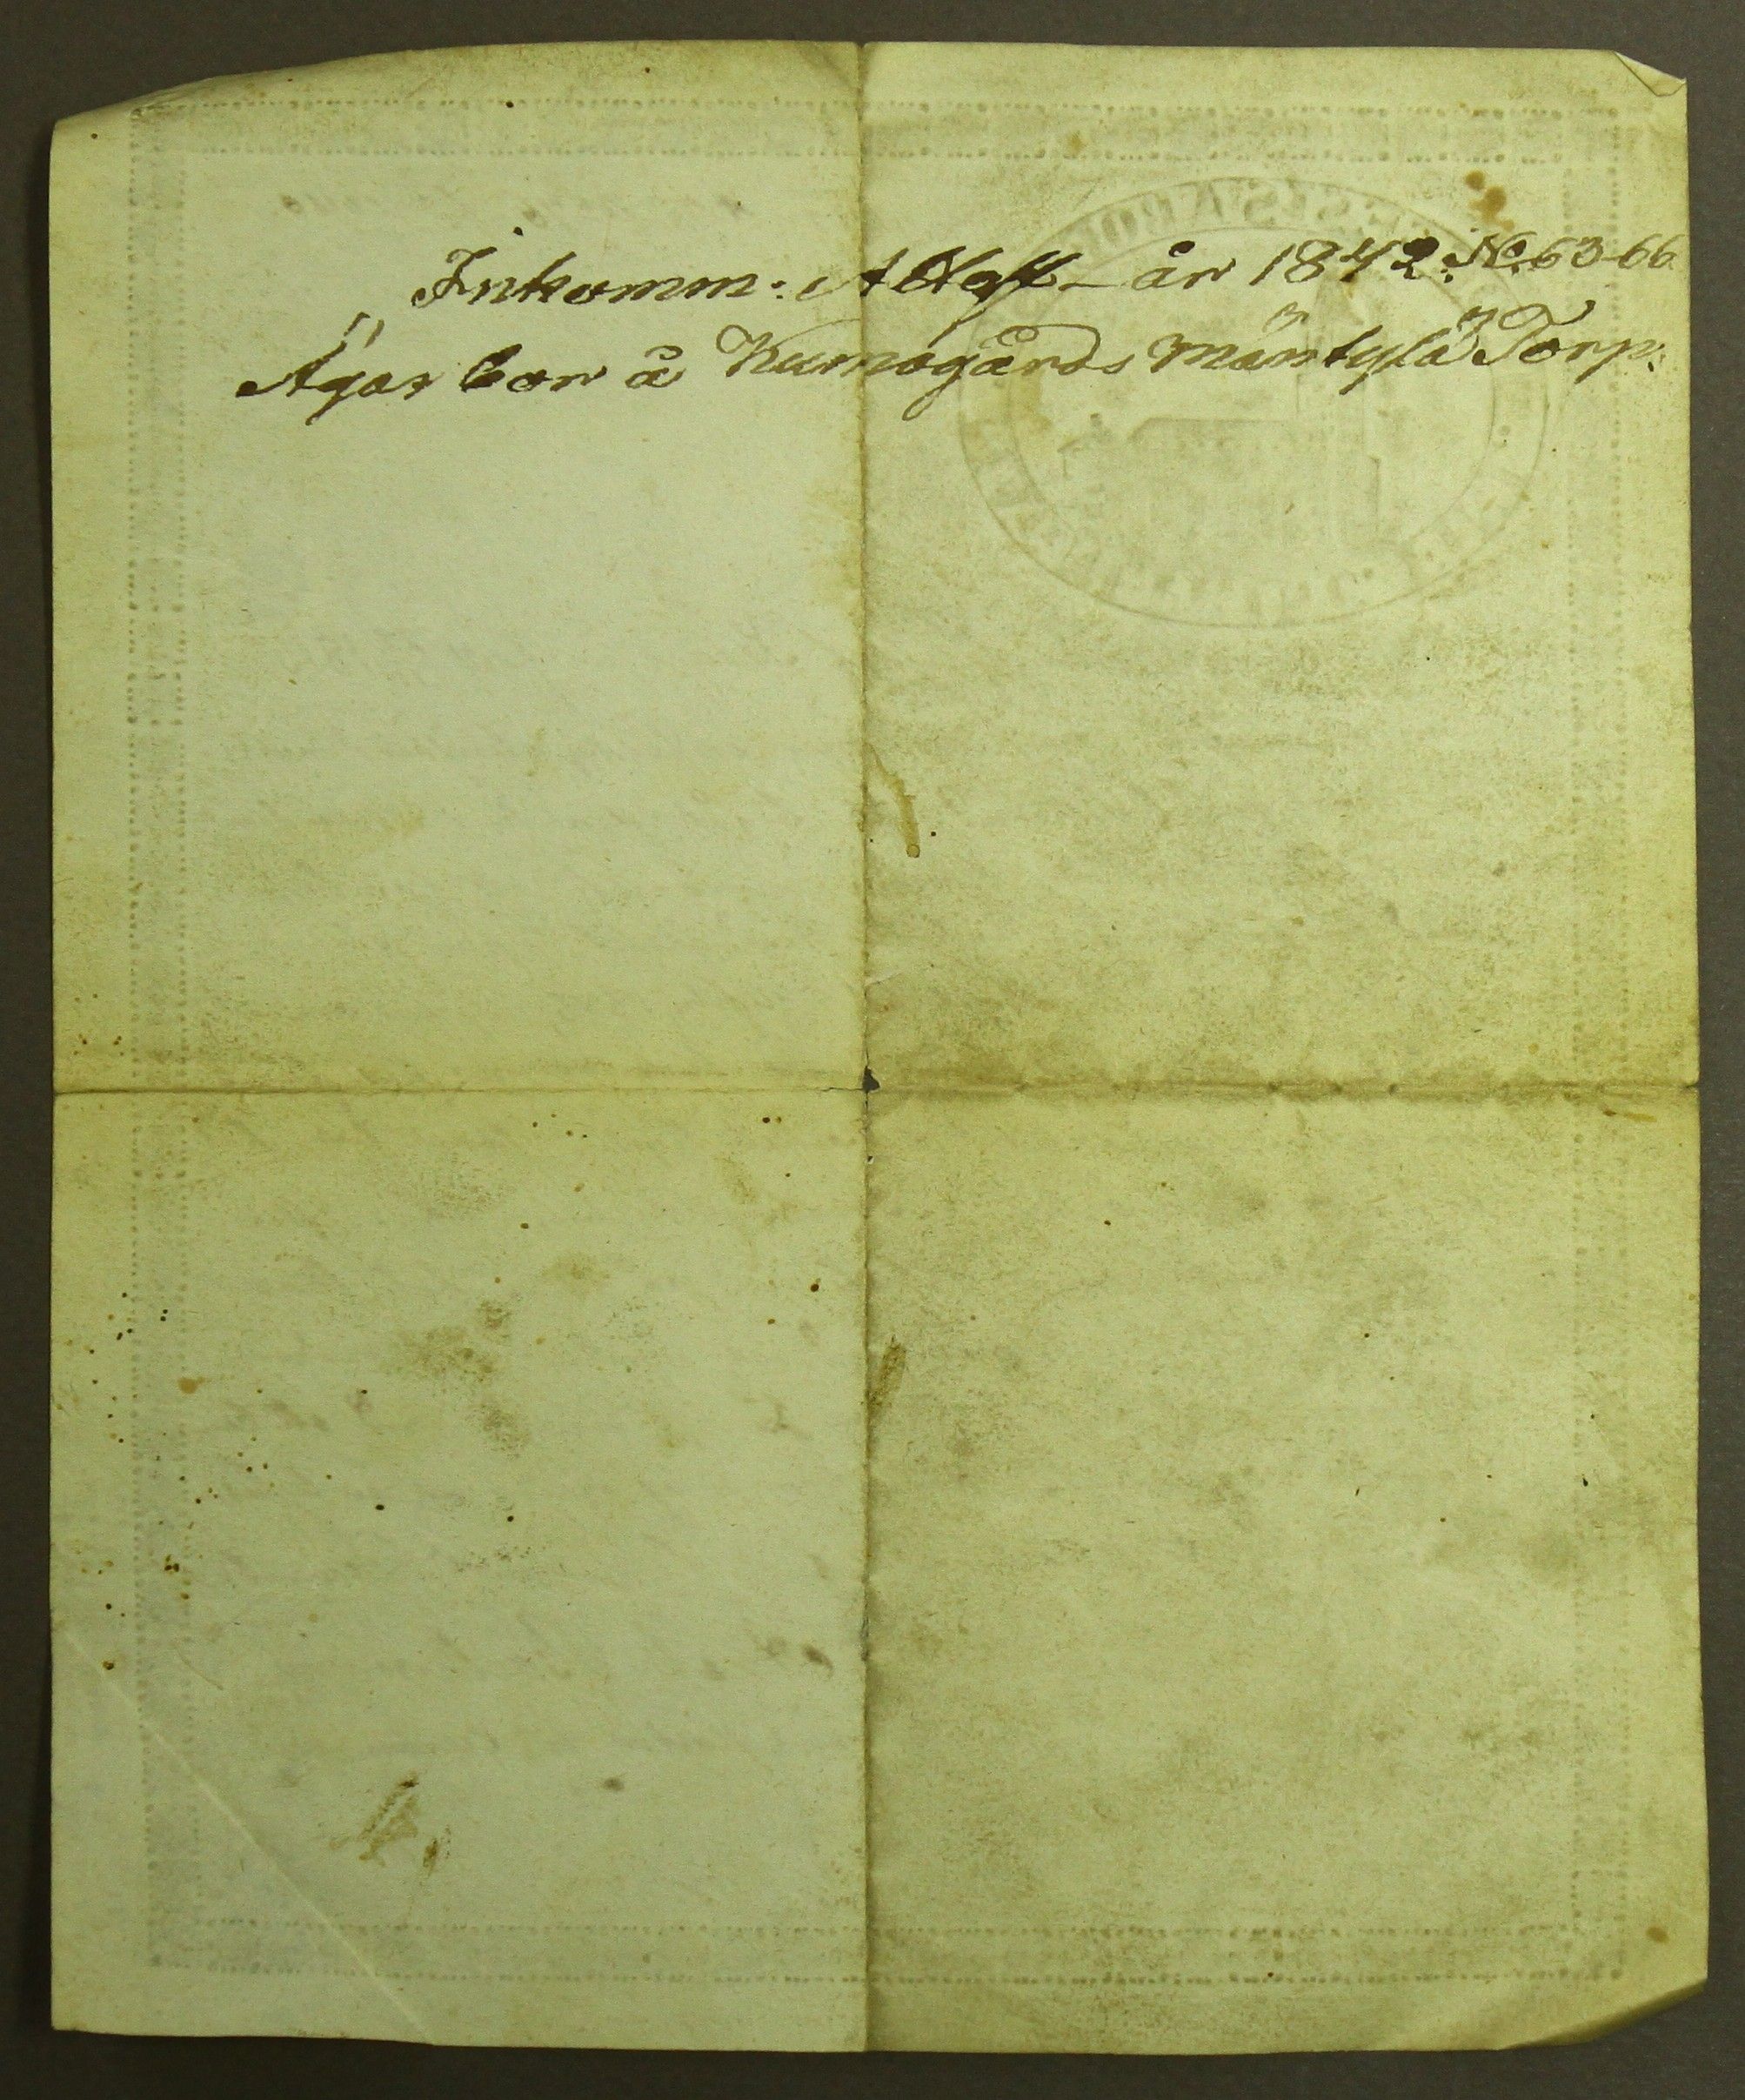 Inkomm: Attest – år 1842. No. 63-66
Ägar bor å Kumogårds Mäntylä Torp: